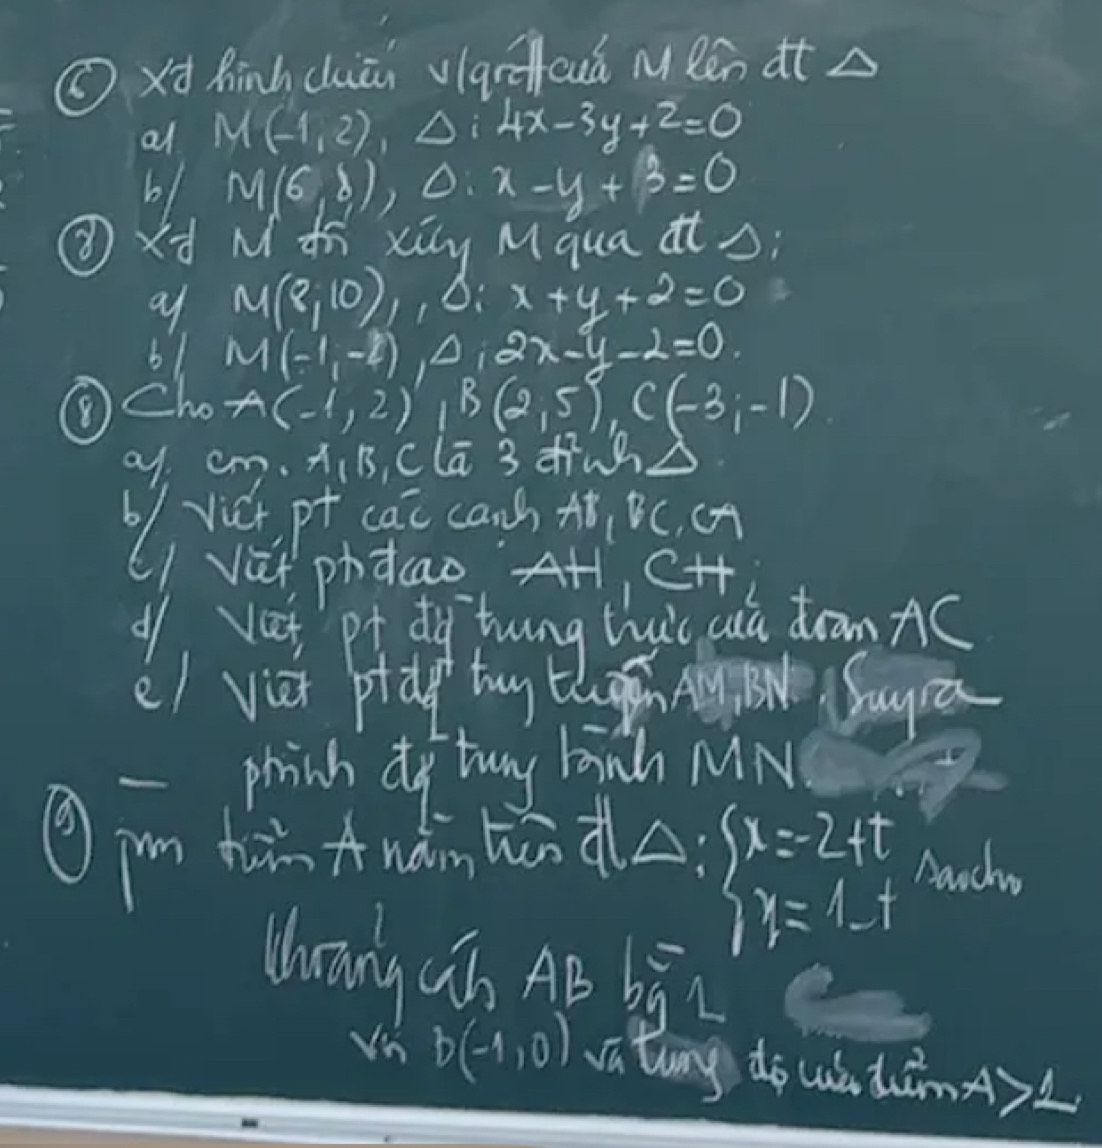 ⑥ Xđ hình chiếu v/góc của M lên đt Δ
a/ M(-1,2), Δ: 4x-3y+2=0
b/ M(6,8), Δ: x-y+3=0
Xđ M' đối xứng M qua đt Δ:
a/ M(8;10), , Δ: x+y+2=0
b/ M(-1;-2), Δ: 2x-y-2=0.
⑧ Cho A(-1,2), B(2,5), C(-3;-1).
a/. cm. A, B, C là 3 đỉnh Δ
b/ Viết pt các cạnh AB, BC, CA
c/ Viết pt đ cao AH, CH;
d/ Viết pt đg trung trực của đoạn AC
e/ Viết pt đg trung tuyến AM, BN. Suy ra
ptrình đg trung bình MN.
⑨ Tìm điểm A nằm trên đt Δ: {x=-2+t
{y=1-t sao cho
khoảng cách AB bg 2
với B(-1,0) và tung độ của điểm A>1